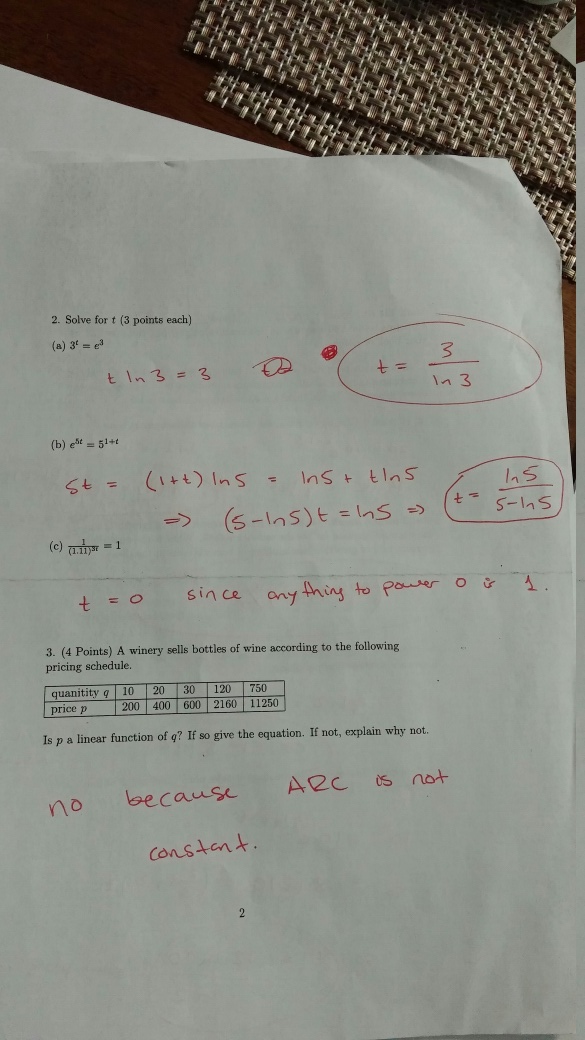 2. Solve for t (3 points each)
(a) 3^t = e^3
t ln 3 = 3 t = 3/ln 3
(b) e^{5t} = 5^{1+t}
5t = (1+t) ln5 = ln5 + t ln5
⇒ (5-ln5)t = ln5 ⇒ t = ln5/5-ln5
(c) 1/(1.11)^{3t} = 1
t = 0 since anything to power 0 is 1.
3. (4 Points) A winery sells bottles of wine according to the following
pricing schedule.
quanitity q 10 20 30 120 750
price p 200 400 600 2160 11250
Is p a linear function of q? If so give the equation. If not, explain why not.
no because ARC is not
constant.
2